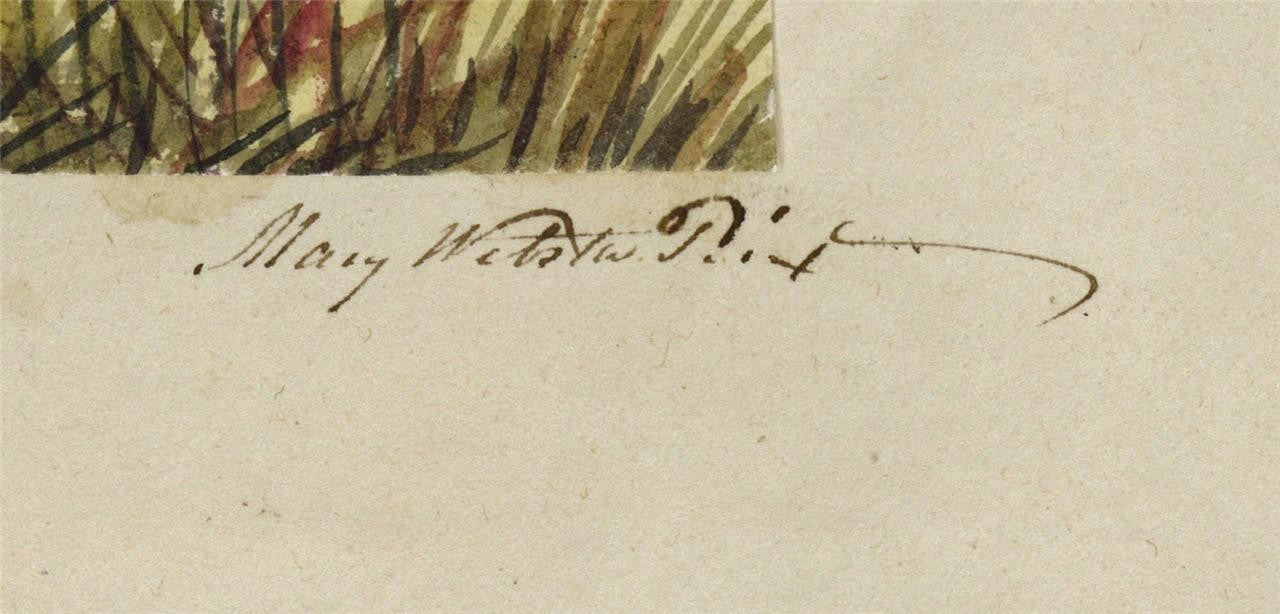 Mary Webster Rix